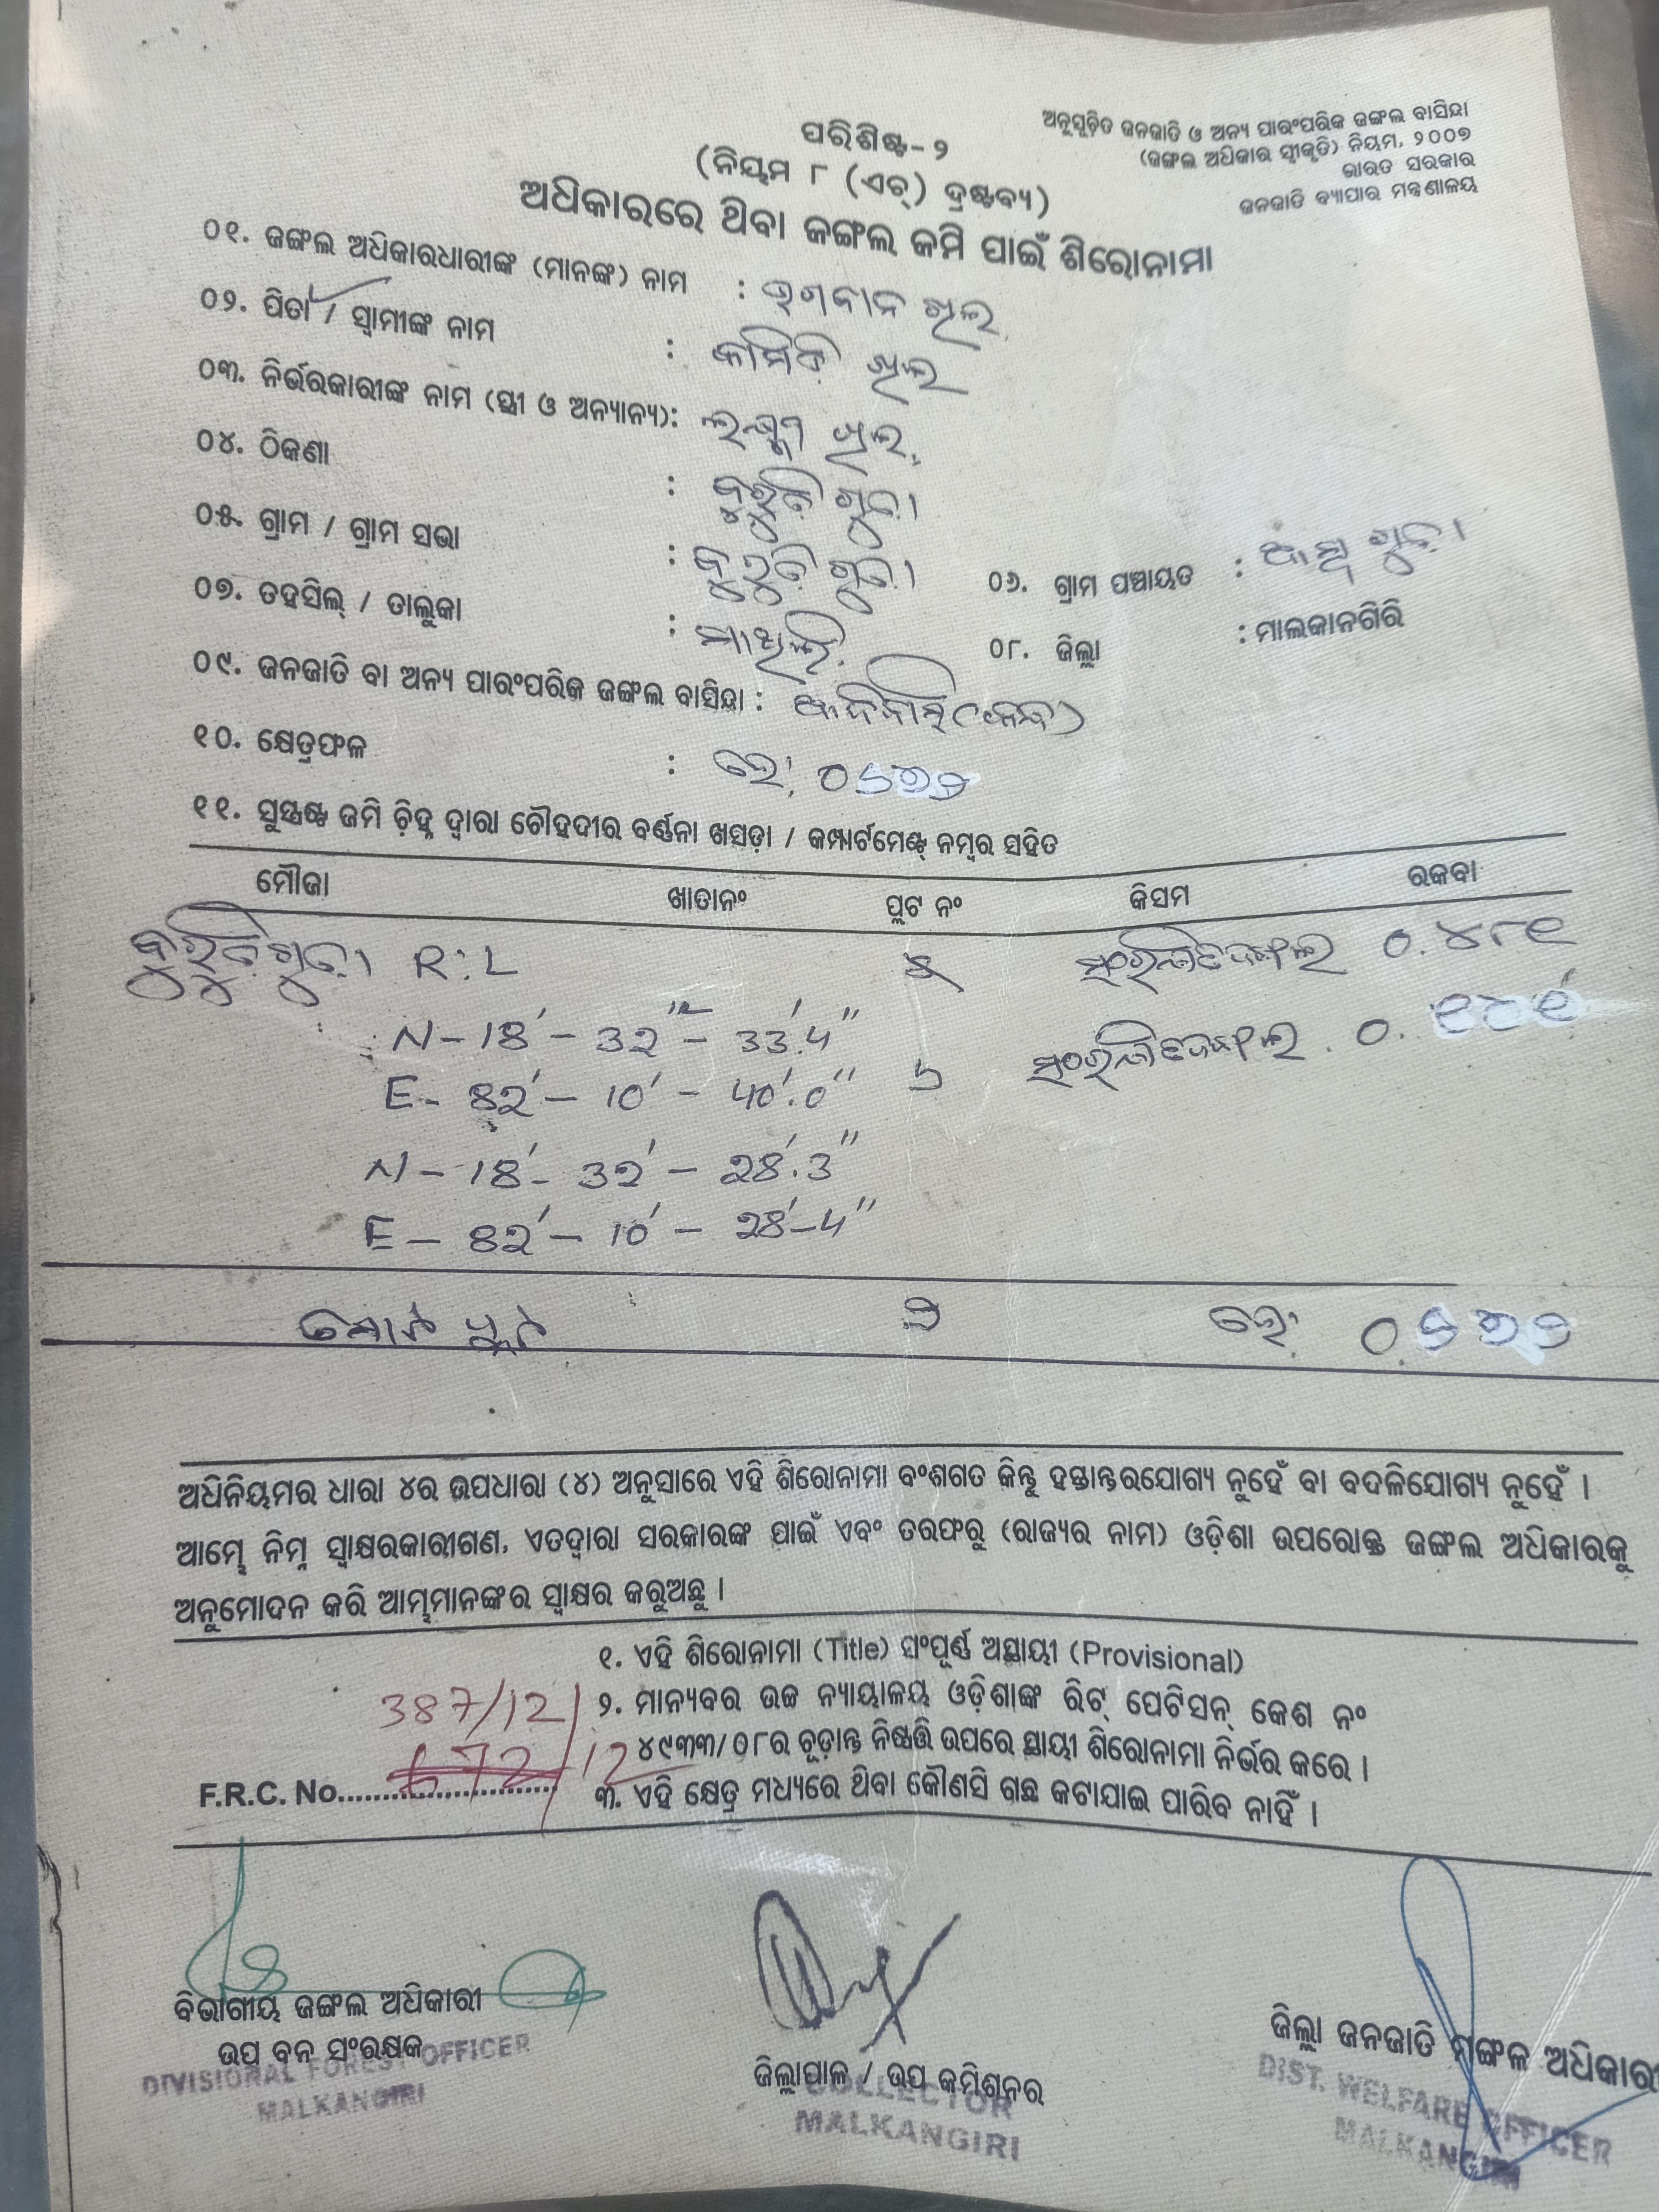 ଅନୁସୂଚିତ ଜନଜାତି ଓ ଅନ୍ୟ ପାରଂପରିକ ଜଙ୍ଗଲ ବାସିନ୍ଦା
(ଜଙ୍ଗଲ ଅଧିକାର ସ୍ୱୀକୃତି) ନିୟମ, ୨୦୦୭
ଭାରତ ସରକାର
ଜନଜାତି ବ୍ୟାପାର ମନ୍ତ୍ରଣାଳୟ
ପରିଶିଷ୍ଟ-୨
(ନିୟମ ୮ (ଏଚ୍) ଦ୍ରଷ୍ଟବ୍ୟ)
ଅଧିକାରରେ ଥିବା ଜଙ୍ଗଲ ଜମି ପାଇଁ ଶିରୋନାମା
୦୧. ଜଙ୍ଗଲ ଅଧିକାରଧାରୀଙ୍କ (ମାନଙ୍କ) ନାମ : ଭଗବାନ ଖିଲ
୦୨. ପିତା / ସ୍ୱାମୀଙ୍କ ନାମ : ଖିଲ
୦୩. ନିର୍ଭରକାରୀଙ୍କ ନାମ (ସ୍ତ୍ରୀ ଓ ଅନ୍ୟାନ୍ୟ): ଖିଲ
୦୪. ଠିକଣା : ଗୁଡ଼ା
୦୫. ଗ୍ରାମ / ଗ୍ରାମ ସଭା : ଗୁଡ଼ା ୦୬. ଗ୍ରାମ ପଞ୍ଚାୟତ : ଗୁଡ଼ା
୦୭. ତହସିଲ୍ / ତାଲୁକା : ମାଥିଲି ୦୮. ଜିଲ୍ଲା : ମାଲକାନଗିରି
୦୯. ଜନଜାତି ବା ଅନ୍ୟ ପାରଂପରିକ ଜଙ୍ଗଲ ବାସିନ୍ଦା : ଆଦିବାସୀ
୧୦. କ୍ଷେତ୍ରଫଳ : ହେ:
୧୧. ସୁସ୍ପଷ୍ଟ ଜମି ଚିହ୍ନ ଦ୍ୱାରା ଚୌହଦୀର ବର୍ଣ୍ଣନା ଖସଡ଼ା / କମ୍ପାର୍ଟମେଣ୍ଟ୍ ନମ୍ବର ସହିତ
ମୌଜା ଖାତାନଂ ପ୍ଲଟ ନଂ କିସମ ରକବା
R:L ସଂରକ୍ଷିତ ଜଙ୍ଗଲ ୦.୪୮୧
N - 18' - 32" - 33'.4"
ସଂରକ୍ଷିତ ଜଙ୍ଗଲ ୦.
E - 82' - 10' - 40'.0"
N - 18' - 32' - 28'.3"
E - 82' - 10' - 28' - 4"
ମୋଟ ପ୍ଲଟ ୨ ହେ:
ଅଧିନିୟମର ଧାରା ୪ର ଉପଧାରା (୪) ଅନୁସାରେ ଏହି ଶିରୋନାମା ବଂଶଗତ କିନ୍ତୁ ହସ୍ତାନ୍ତରଯୋଗ୍ୟ ନୁହେଁ ବା ବଦଳିଯୋଗ୍ୟ ନୁହେଁ ।
ଆମ୍ଭେ ନିମ୍ନ ସ୍ୱାକ୍ଷରକାରୀଗଣ, ଏତଦ୍ୱାରା ସରକାରଙ୍କ ପାଇଁ ଏବଂ ତରଫରୁ (ରାଜ୍ୟର ନାମ) ଓଡ଼ିଶା ଉପରୋକ୍ତ ଜଙ୍ଗଲ ଅଧିକାରକୁ
ଅନୁମୋଦନ କରି ଆମ୍ଭମାନଙ୍କର ସ୍ୱାକ୍ଷର କରୁଅଛୁ ।
୧. ଏହି ଶିରୋନାମା (Title) ସଂପୂର୍ଣ୍ଣ ଅସ୍ଥାୟୀ (Provisional)
387/12
୨. ମାନ୍ୟବର ଉଚ୍ଚ ନ୍ୟାୟାଳୟ ଓଡ଼ିଶାଙ୍କ ରିଟ୍ ପେଟିସନ୍ କେଶ ନଂ
୪୯୩୩/୦୮ର ଚୂଡ଼ାନ୍ତ ନିଷ୍ପତ୍ତି ଉପରେ ସ୍ଥାୟୀ ଶିରୋନାମା ନିର୍ଭର କରେ ।
F.R.C. No.
୩. ଏହି କ୍ଷେତ୍ର ମଧ୍ୟରେ ଥିବା କୌଣସି ଗଛ କଟାଯାଇ ପାରିବ ନାହିଁ ।
ବିଭାଗୀୟ ଜଙ୍ଗଲ ଅଧିକାରୀ
ଉପ ବନ ସଂରକ୍ଷକ
DIVISIONAL FOREST OFFICER
MALKANGIRI
ଜିଲ୍ଲାପାଳ / ଉପ କମିଶନର
COLLECTOR
MALKANGIRI
ଜିଲ୍ଲା ଜନଜାତି ମଙ୍ଗଳ ଅଧିକାରୀ
DIST. WELFARE OFFICER
MALKANGIRI